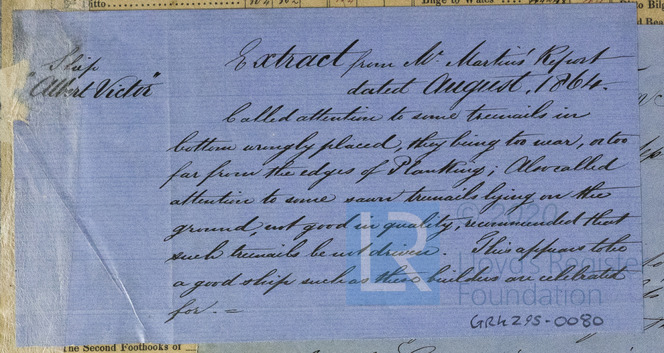 Ditto
Bilge to Wales
Ditto Bilge
Ship
"Albert Victor"
Extract from Mr. Martin's Report
dated August, 1864.
Called attention to some treenails in
bottom wrongly placed, they being too near, or too
far from the edges of Planking; Also called
attention to some sawn treenails lying on the
ground not good in quality, recommended that
such treenails be not driven. This appears to be
a good ship such as these builders are celebrated
for. =
© 2020
LR
Lloyd's Register
Foundation
GRK295-0080
The Second Foothooks of